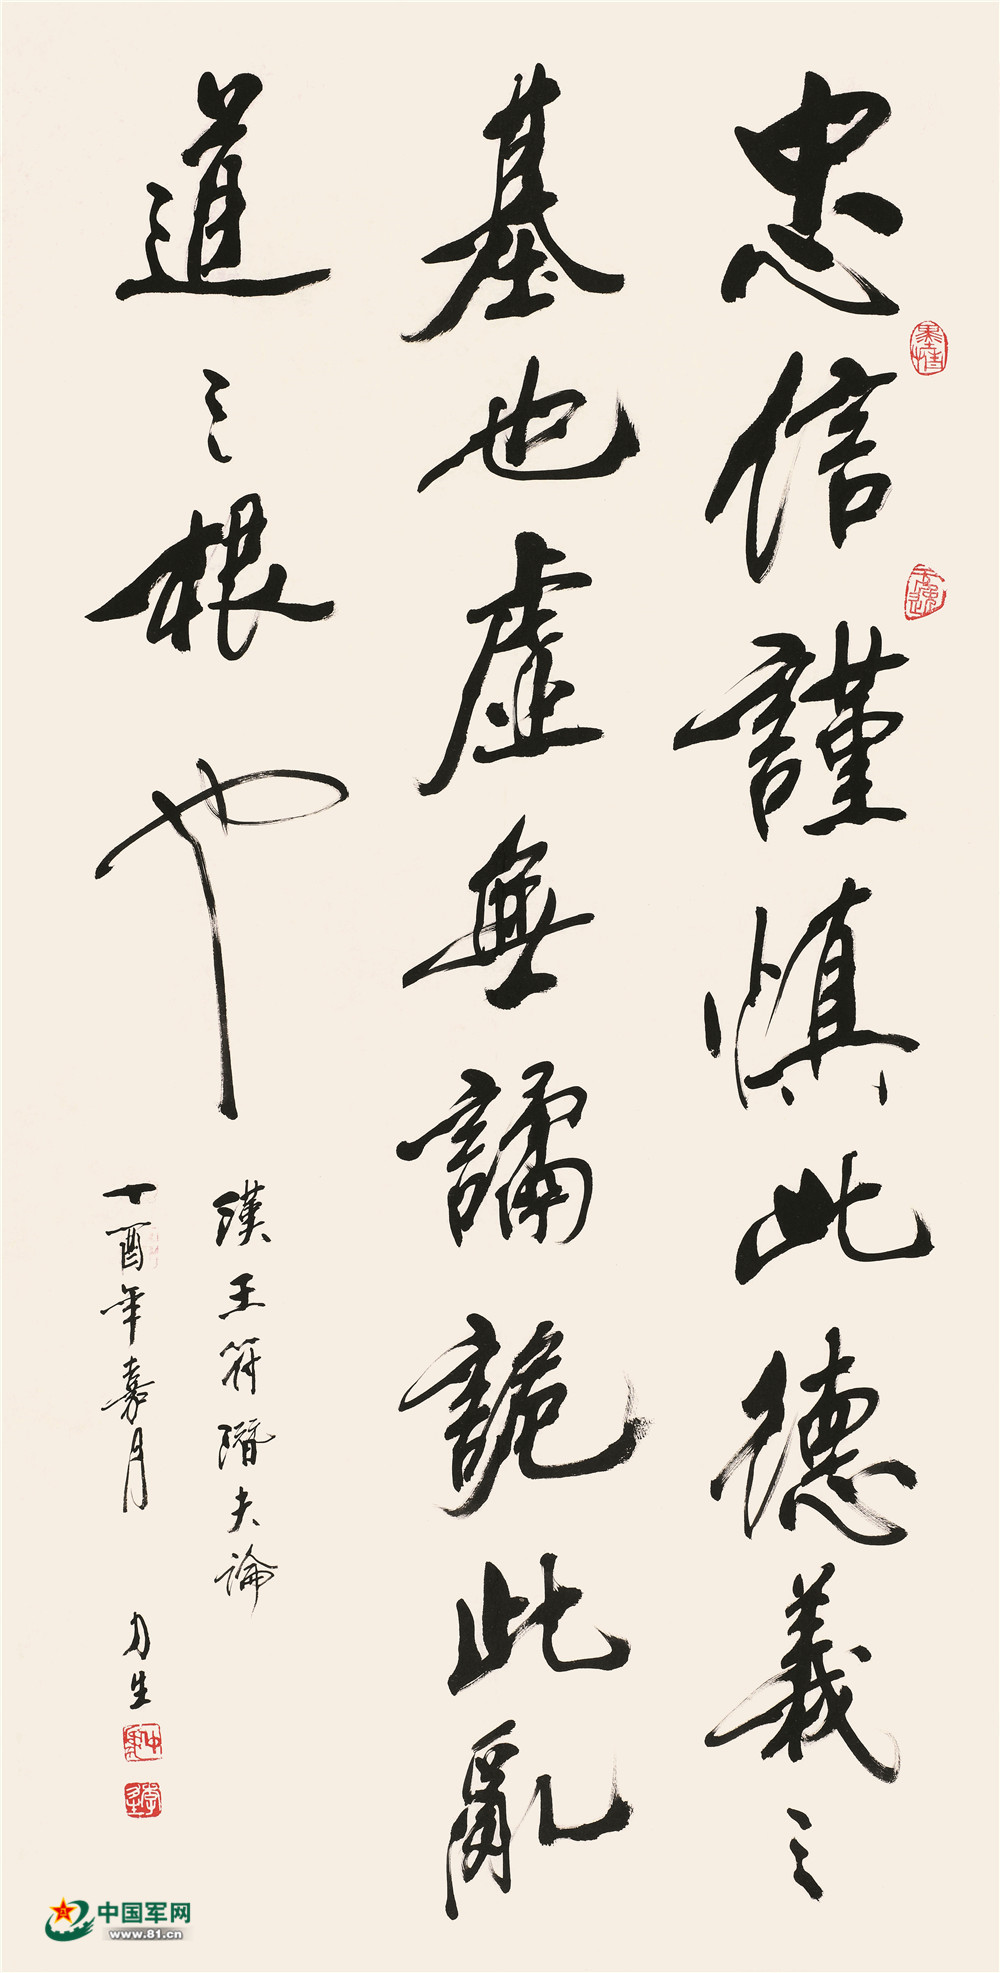 忠信謹慎此德義之
基也虛無譎詭此亂
道之根也
漢王符潛夫論
丁酉年嘉月
力生
墨情
中国军网
www.81.cn